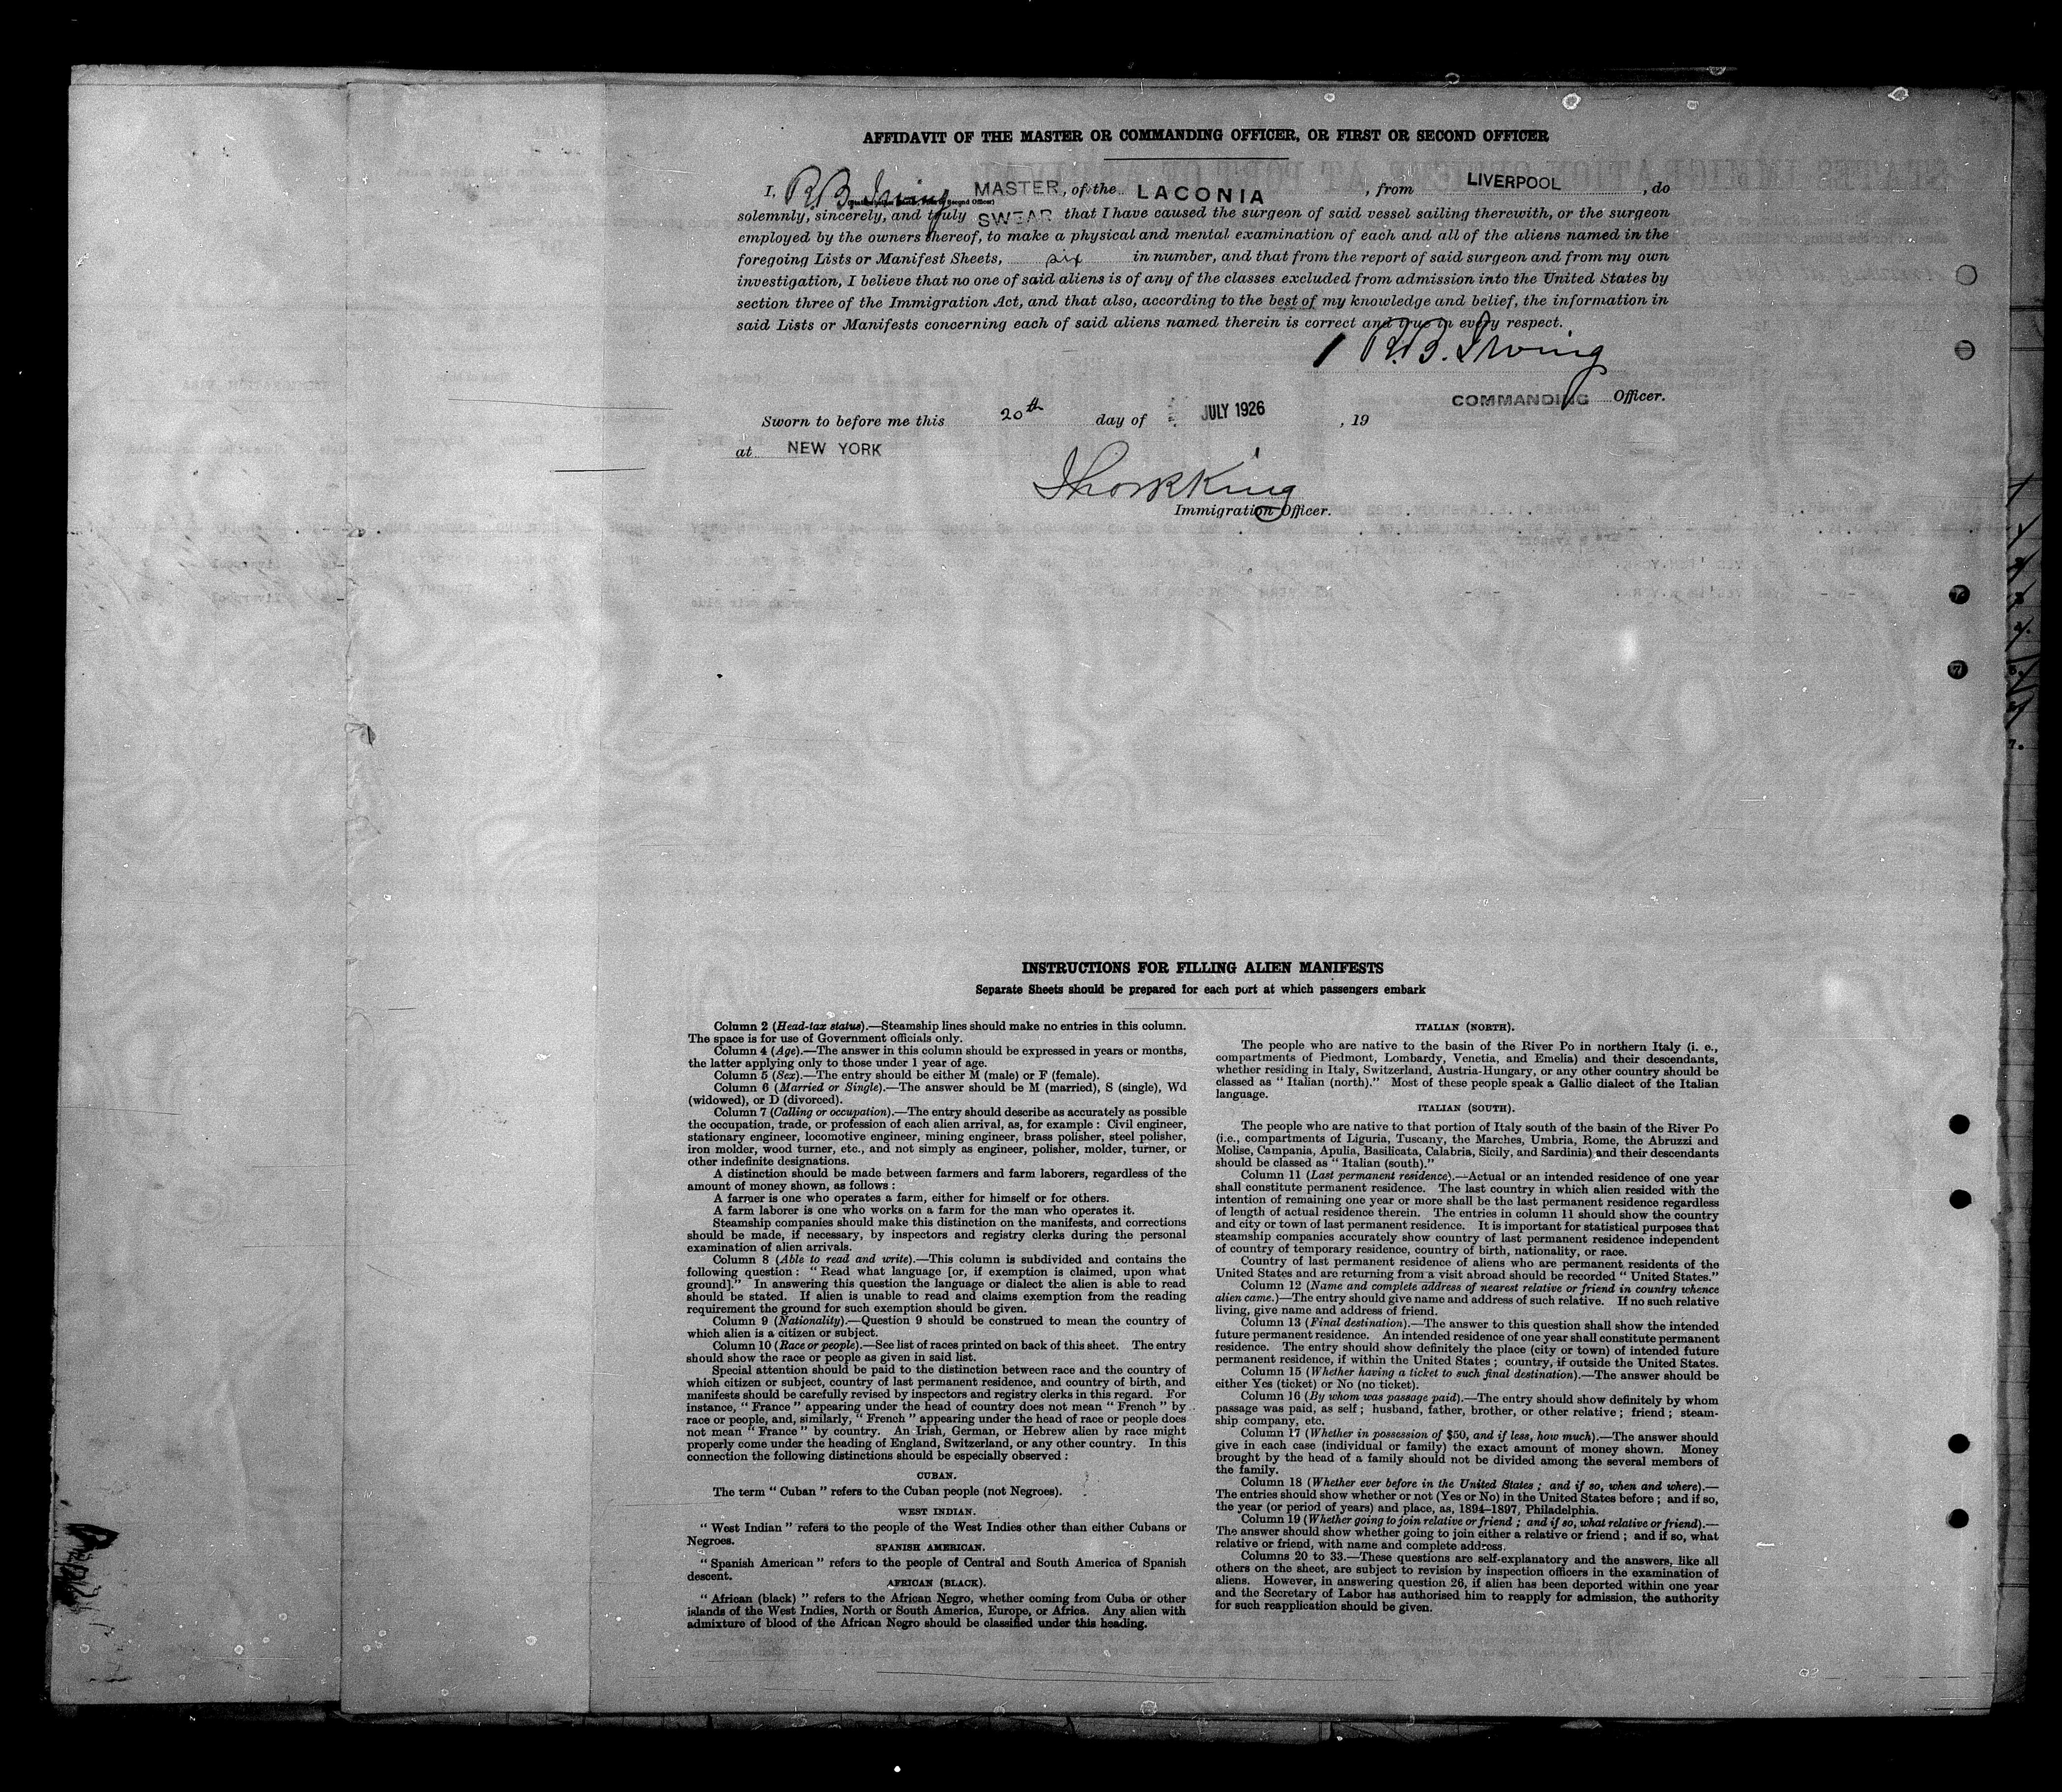 AFFIDAVIT OF THE MASTER OR COMMANDING OFFICER, OR FIRST OR SECOND OFFICER
I, R.B. Irving MASTER, of the LACONIA, from LIVERPOOL, do
solemnly, sincerely, and truly SWEAR that I have caused the surgeon of said vessel sailing therewith, or the surgeon
employed by the owners thereof, to make a physical and mental examination of each and all of the aliens named in the
foregoing Lists or Manifest Sheets, six in number, and that from the report of said surgeon and from my own
investigation, I believe that no one of said aliens is of any of the classes excluded from admission into the United States by
section three of the Immigration Act, and that also, according to the best of my knowledge and belief, the information in
said Lists or Manifests concerning each of said aliens named therein is correct and true in every respect.
R.B. Irving
COMMANDING Officer.
Sworn to before me this 20th day of JULY 1926, 19
at NEW YORK
King
Immigration Officer.
INSTRUCTIONS FOR FILLING ALIEN MANIFESTS
Separate Sheets should be prepared for each port at which passengers embark
Column 2 (Head-tax status).—Steamship lines should make no entries in this column.
The space is for use of Government officials only.
Column 4 (Age).—The answer in this column should be expressed in years or months,
the latter applying only to those under 1 year of age.
Column 5 (Sex).—The entry should be either M (male) or F (female).
Column 6 (Married or Single).—The answer should be M (married), S (single), Wd
(widowed), or D (divorced).
Column 7 (Calling or occupation).—The entry should describe as accurately as possible
the occupation, trade, or profession of each alien arrival, as, for example : Civil engineer,
stationary engineer, locomotive engineer, mining engineer, brass polisher, steel polisher,
iron molder, wood turner, etc., and not simply as engineer, polisher, molder, turner, or
other indefinite designations.
A distinction should be made between farmers and farm laborers, regardless of the
amount of money shown, as follows :
A farmer is one who operates a farm, either for himself or for others.
A farm laborer is one who works on a farm for the man who operates it.
Steamship companies should make this distinction on the manifests, and corrections
should be made, if necessary, by inspectors and registry clerks during the personal
examination of alien arrivals.
Column 8 (Able to read and write).—This column is subdivided and contains the
following question : " Read what language [or, if exemption is claimed, upon what
ground]." In answering this question the language or dialect the alien is able to read
should be stated. If alien is unable to read and claims exemption from the reading
requirement the ground for such exemption should be given.
Column 9 (Nationality).—Question 9 should be construed to mean the country of
which alien is a citizen or subject.
Column 10 (Race or people).—See list of races printed on back of this sheet. The entry
should show the race or people as given in said list.
Special attention should be paid to the distinction between race and the country of
which citizen or subject, country of last permanent residence, and country of birth, and
manifests should be carefully revised by inspectors and registry clerks in this regard. For
instance, " France " appearing under the head of country does not mean " French " by
race or people, and, similarly, " French " appearing under the head of race or people does
not mean " France " by country. An Irish, German, or Hebrew alien by race might
properly come under the heading of England, Switzerland, or any other country. In this
connection the following distinctions should be especially observed :
CUBAN.
The term " Cuban " refers to the Cuban people (not Negroes).
WEST INDIAN.
" West Indian " refers to the people of the West Indies other than either Cubans or
Negroes.
SPANISH AMERICAN.
" Spanish American " refers to the people of Central and South America of Spanish
descent.
AFRICAN (BLACK).
" African (black) " refers to the African Negro, whether coming from Cuba or other
islands of the West Indies, North or South America, Europe, or Africa. Any alien with
admixture of blood of the African Negro should be classified under this heading.
ITALIAN (NORTH).
The people who are native to the basin of the River Po in northern Italy (i. e.,
compartments of Piedmont, Lombardy, Venetia, and Emelia) and their descendants,
whether residing in Italy, Switzerland, Austria-Hungary, or any other country should be
classed as " Italian (north)." Most of these people speak a Gallic dialect of the Italian
language.
ITALIAN (SOUTH).
The people who are native to that portion of Italy south of the basin of the River Po
(i.e., compartments of Liguria, Tuscany, the Marches, Umbria, Rome, the Abruzzi and
Molise, Campania, Apulia, Basilicata, Calabria, Sicily, and Sardinia) and their descendants
should be classed as " Italian (south)."
Column 11 (Last permanent residence).—Actual or an intended residence of one year
shall constitute permanent residence. The last country in which alien resided with the
intention of remaining one year or more shall be the last permanent residence regardless
of length of actual residence therein. The entries in column 11 should show the country
and city or town of last permanent residence. It is important for statistical purposes that
steamship companies accurately show country of last permanent residence independent
of country of temporary residence, country of birth, nationality, or race.
Country of last permanent residence of aliens who are permanent residents of the
United States and are returning from a visit abroad should be recorded " United States."
Column 12 (Name and complete address of nearest relative or friend in country whence
alien came.)—The entry should give name and address of such relative. If no such relative
living, give name and address of friend.
Column 13 (Final destination).—The answer to this question shall show the intended
future permanent residence. An intended residence of one year shall constitute permanent
residence. The entry should show definitely the place (city or town) of intended future
permanent residence, if within the United States ; country, if outside the United States.
Column 15 (Whether having a ticket to such final destination).—The answer should be
either Yes (ticket) or No (no ticket).
Column 16 (By whom was passage paid).—The entry should show definitely by whom
passage was paid, as self ; husband, father, brother, or other relative ; friend ; steam-
ship company, etc.
Column 17 (Whether in possession of $50, and if less, how much).—The answer should
give in each case (individual or family) the exact amount of money shown. Money
brought by the head of a family should not be divided among the several members of
the family.
Column 18 (Whether ever before in the United States ; and if so, when and where).—
The entries should show whether or not (Yes or No) in the United States before ; and if so,
the year (or period of years) and place, as, 1894–1897, Philadelphia.
Column 19 (Whether going to join relative or friend ; and if so, what relative or friend).—
The answer should show whether going to join either a relative or friend ; and if so, what
relative or friend, with name and complete address.
Columns 20 to 33.—These questions are self-explanatory and the answers, like all
others on the sheet, are subject to revision by inspection officers in the examination of
aliens. However, in answering question 26, if alien has been deported within one year
and the Secretary of Labor has authorised him to reapply for admission, the authority
for such reapplication should be given.